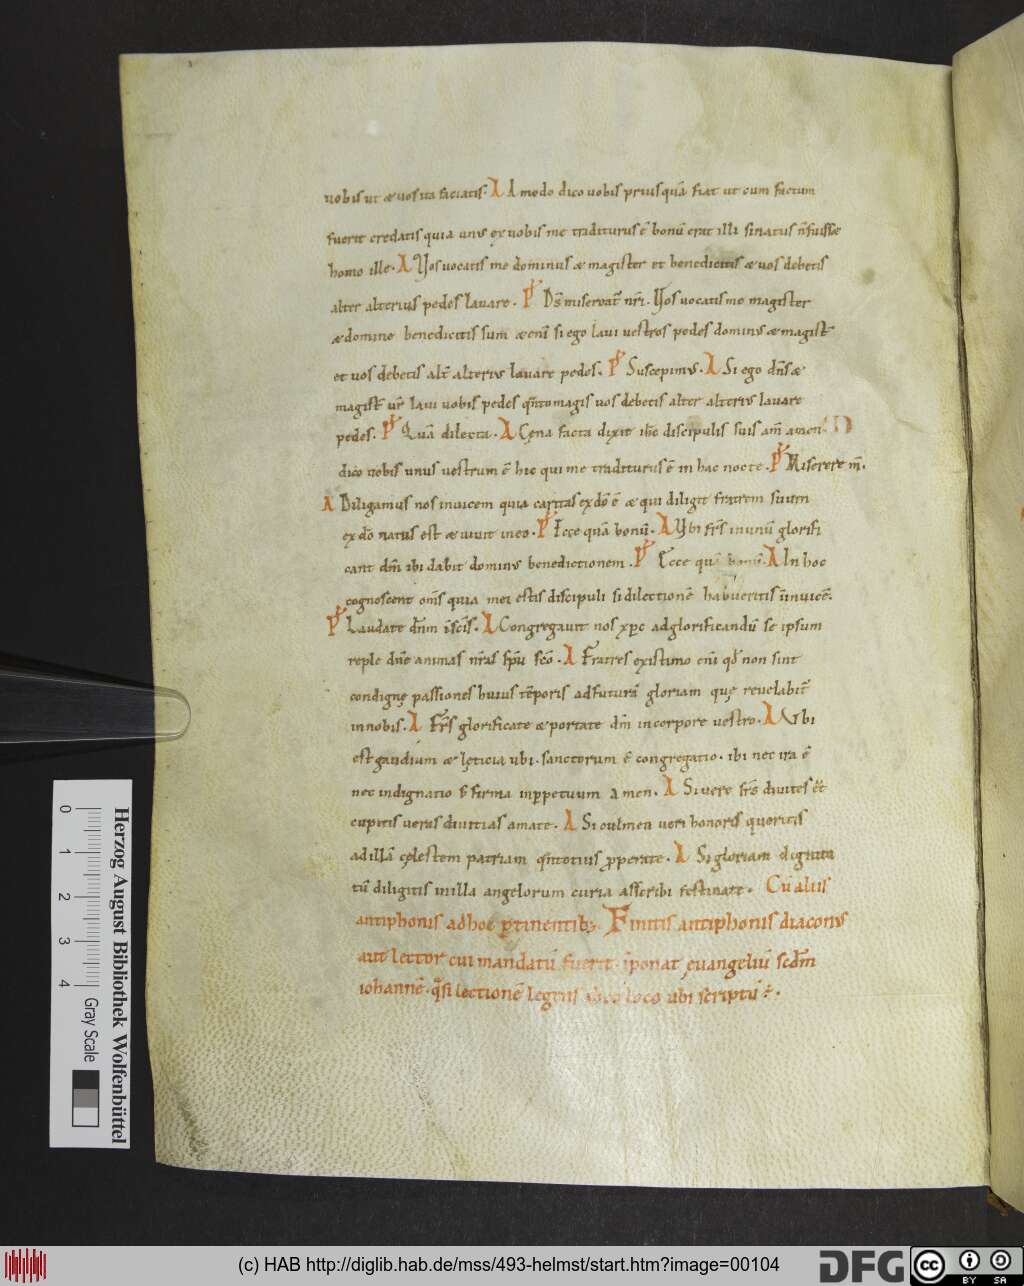 uobis ut & uos ita faciatis. A A modo dico uobis priusquã fiat ut cum factum
fuerit credatis quia unus ex uobis me traditurus ẽ bonũ erat illi si natus ñ fuisset
homo ille. A Vos uocatis me dominus & magister et benedicitis & uos debetis
alter alterius pedes lauare. P Ds̃ misereat̃ nr̃i. Vos uocatis me magister
& domine benedicitis sum & eni si ego laui uestros pedes dominus & magist̃
et uos debetis alt̃ alterius lauare pedes. P Suscepimus. A Si ego dñs &
magist̃ ur̃ laui uobis pedes qñto magis uos debetis alter alterius lauare
pedes. P Quã dilecta. A Cęna facta dixit ihc̃ discipulis suis am̃ amen
dico uobis unus uestrum ẽ hic qui me traditurus ẽ in hac nocte. P Miserere m̃.
A Diligamus nos inuicem quia caritas ex dõ ẽ & qui diligit fratrem suum
ex dõ natus est & uiuit in eo. P Ecce quã bonũ. A Vbi fr̃s in unũ glorifi
cant dm̃ ibi dabit dominus benedictionem. P Ecce quã bonũ. A In hoc
cognoscent om̃s quia mei estis discipuli si dilectionẽ habueritis inuicẽ.
P Laudate dñm in sc̃is. A Congregauit nos xp̃c ad glorificandũ se ipsum
reple dñe animas nr̃as sp̃u sc̃o. A Fratres existimo eni qđ non sint
condignę passiones huius tẽporis ad futurã gloriam quę reuelabit̃
in nobis. A Fr̃s glorificate & portate dm̃ in corpore uestro. A Vbi
est gaudium & lęticia ubi. sanctorum ẽ congregatio. ibi nec ira ẽ
nec indignatio s; firma in ppetuum amen. A Si uere fr̃s diuites ee
cupitis ueras diuitias amate. A Si culmen ueri honoris queritis
ad illã cęlestem patriam qñtotius pperate. A Si gloriam dignita
tũ diligitis in illa angelorum curia asscribi festinate. Cũ aliis
antiphonis ad hoc ptinentib; Finitis antiphonis diaconus
aut lector cui mandatũ fuerit inponat ęuangeliũ scdm̃
iohannẽ. q̃si lectionẽ legens loco ubi scriptũ ẽ.
0 1 2 3 4
Gray Scale
Herzog August Bibliothek Wolfenbüttel
(c) HAB http://diglib.hab.de/mss/493-helmst/start.htm?image=00104
DFG
cc BY SA